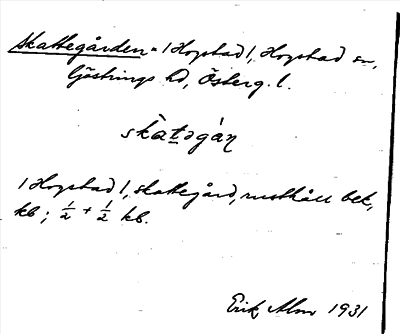 Skattegården = 1 Hogstad 1, Hogstad sn,
Göstrings hd, Österg. l.
skat̲əgàṇ
1 Hogstad 1, skattegård, rusthåll bek,
kb; ½ + ½ kb.
Erik Alm 1931